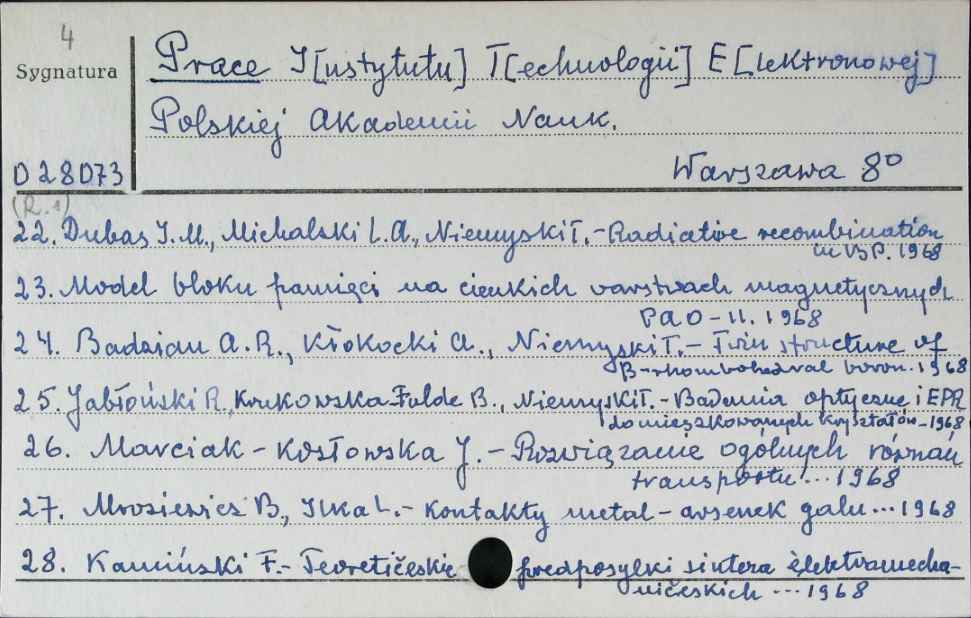 4
Sygnatura
Prace I[nstytutu] T[echnologii] E[lektronowej]
Polskiej Akademii Nauk.
Warszawa 8°
D 28073
(R.1)
22. Dubas J.M., Michalski L.A., Niemyski T. - Radiative recombination
in VBP. 1968
23. Model bloku pamięci na cienkich warstwach magnetycznych
PAO-11. 1968
24. Badzian A.R., Kłokocki A., Niemyski T. - Twin structure of
B-rhombohedral boron. 1968
25. Jabłoński R., Krukowska-Fulde B., Niemyski T. - Badania optyczne i EPR
domieszkowanych kryształów - 1968
26. Marciak-Kozłowska J. - Rozwiązanie ogólnych równań
transportu... 1968
27. Mroziewicz B., Ilka L. - Kontakty metal-arsenek galu... 1968
28. Kamiński F. - Teoretičeskie predposylki sinteza èlektromecha-
ničeskich ... 1968